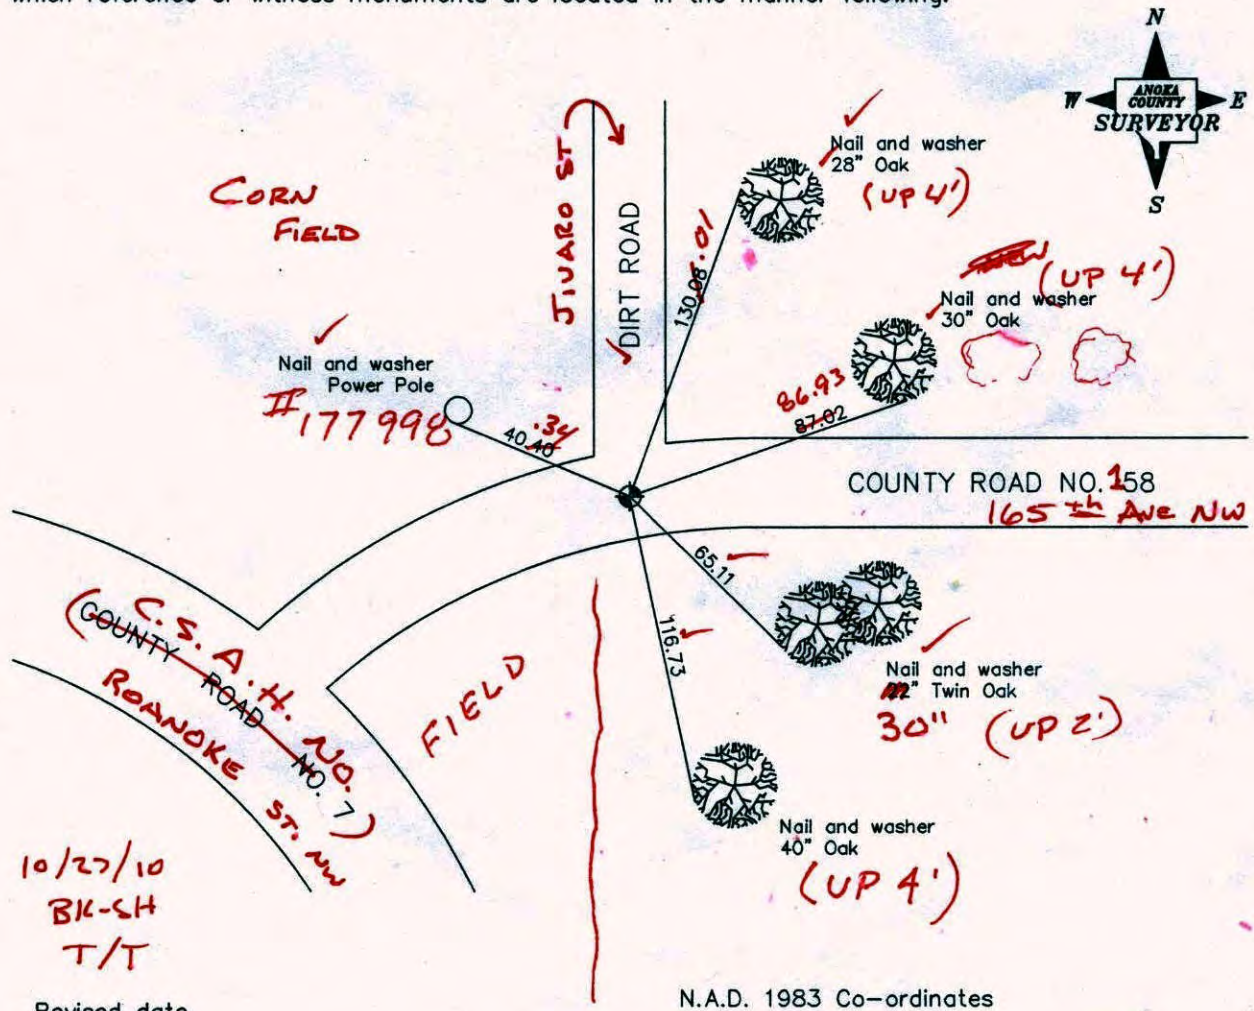 which reference or witness monuments are located in the manner following:
N
W ANOKA COUNTY E
SURVEYOR
S
Nail and washer
28" Oak
(UP 4')
CORN
FIELD
JIVARO ST
DIRT ROAD
130.08 .01
(UP 4')
Nail and washer
30" Oak
Nail and washer
Power Pole
# 177998
40.40 .34
86.93
87.02
COUNTY ROAD NO. 158
165th Ave NW
65.11
116.73
(C.S.A.H. NO.
COUNTY ROAD NO. 7)
ROANOKE ST. NW
FIELD
Nail and washer
22" Twin Oak
30" (UP 2')
Nail and washer
40" Oak
(UP 4')
10/27/10
BK-SH
T/T
Revised date
N.A.D. 1983 Co-ordinates